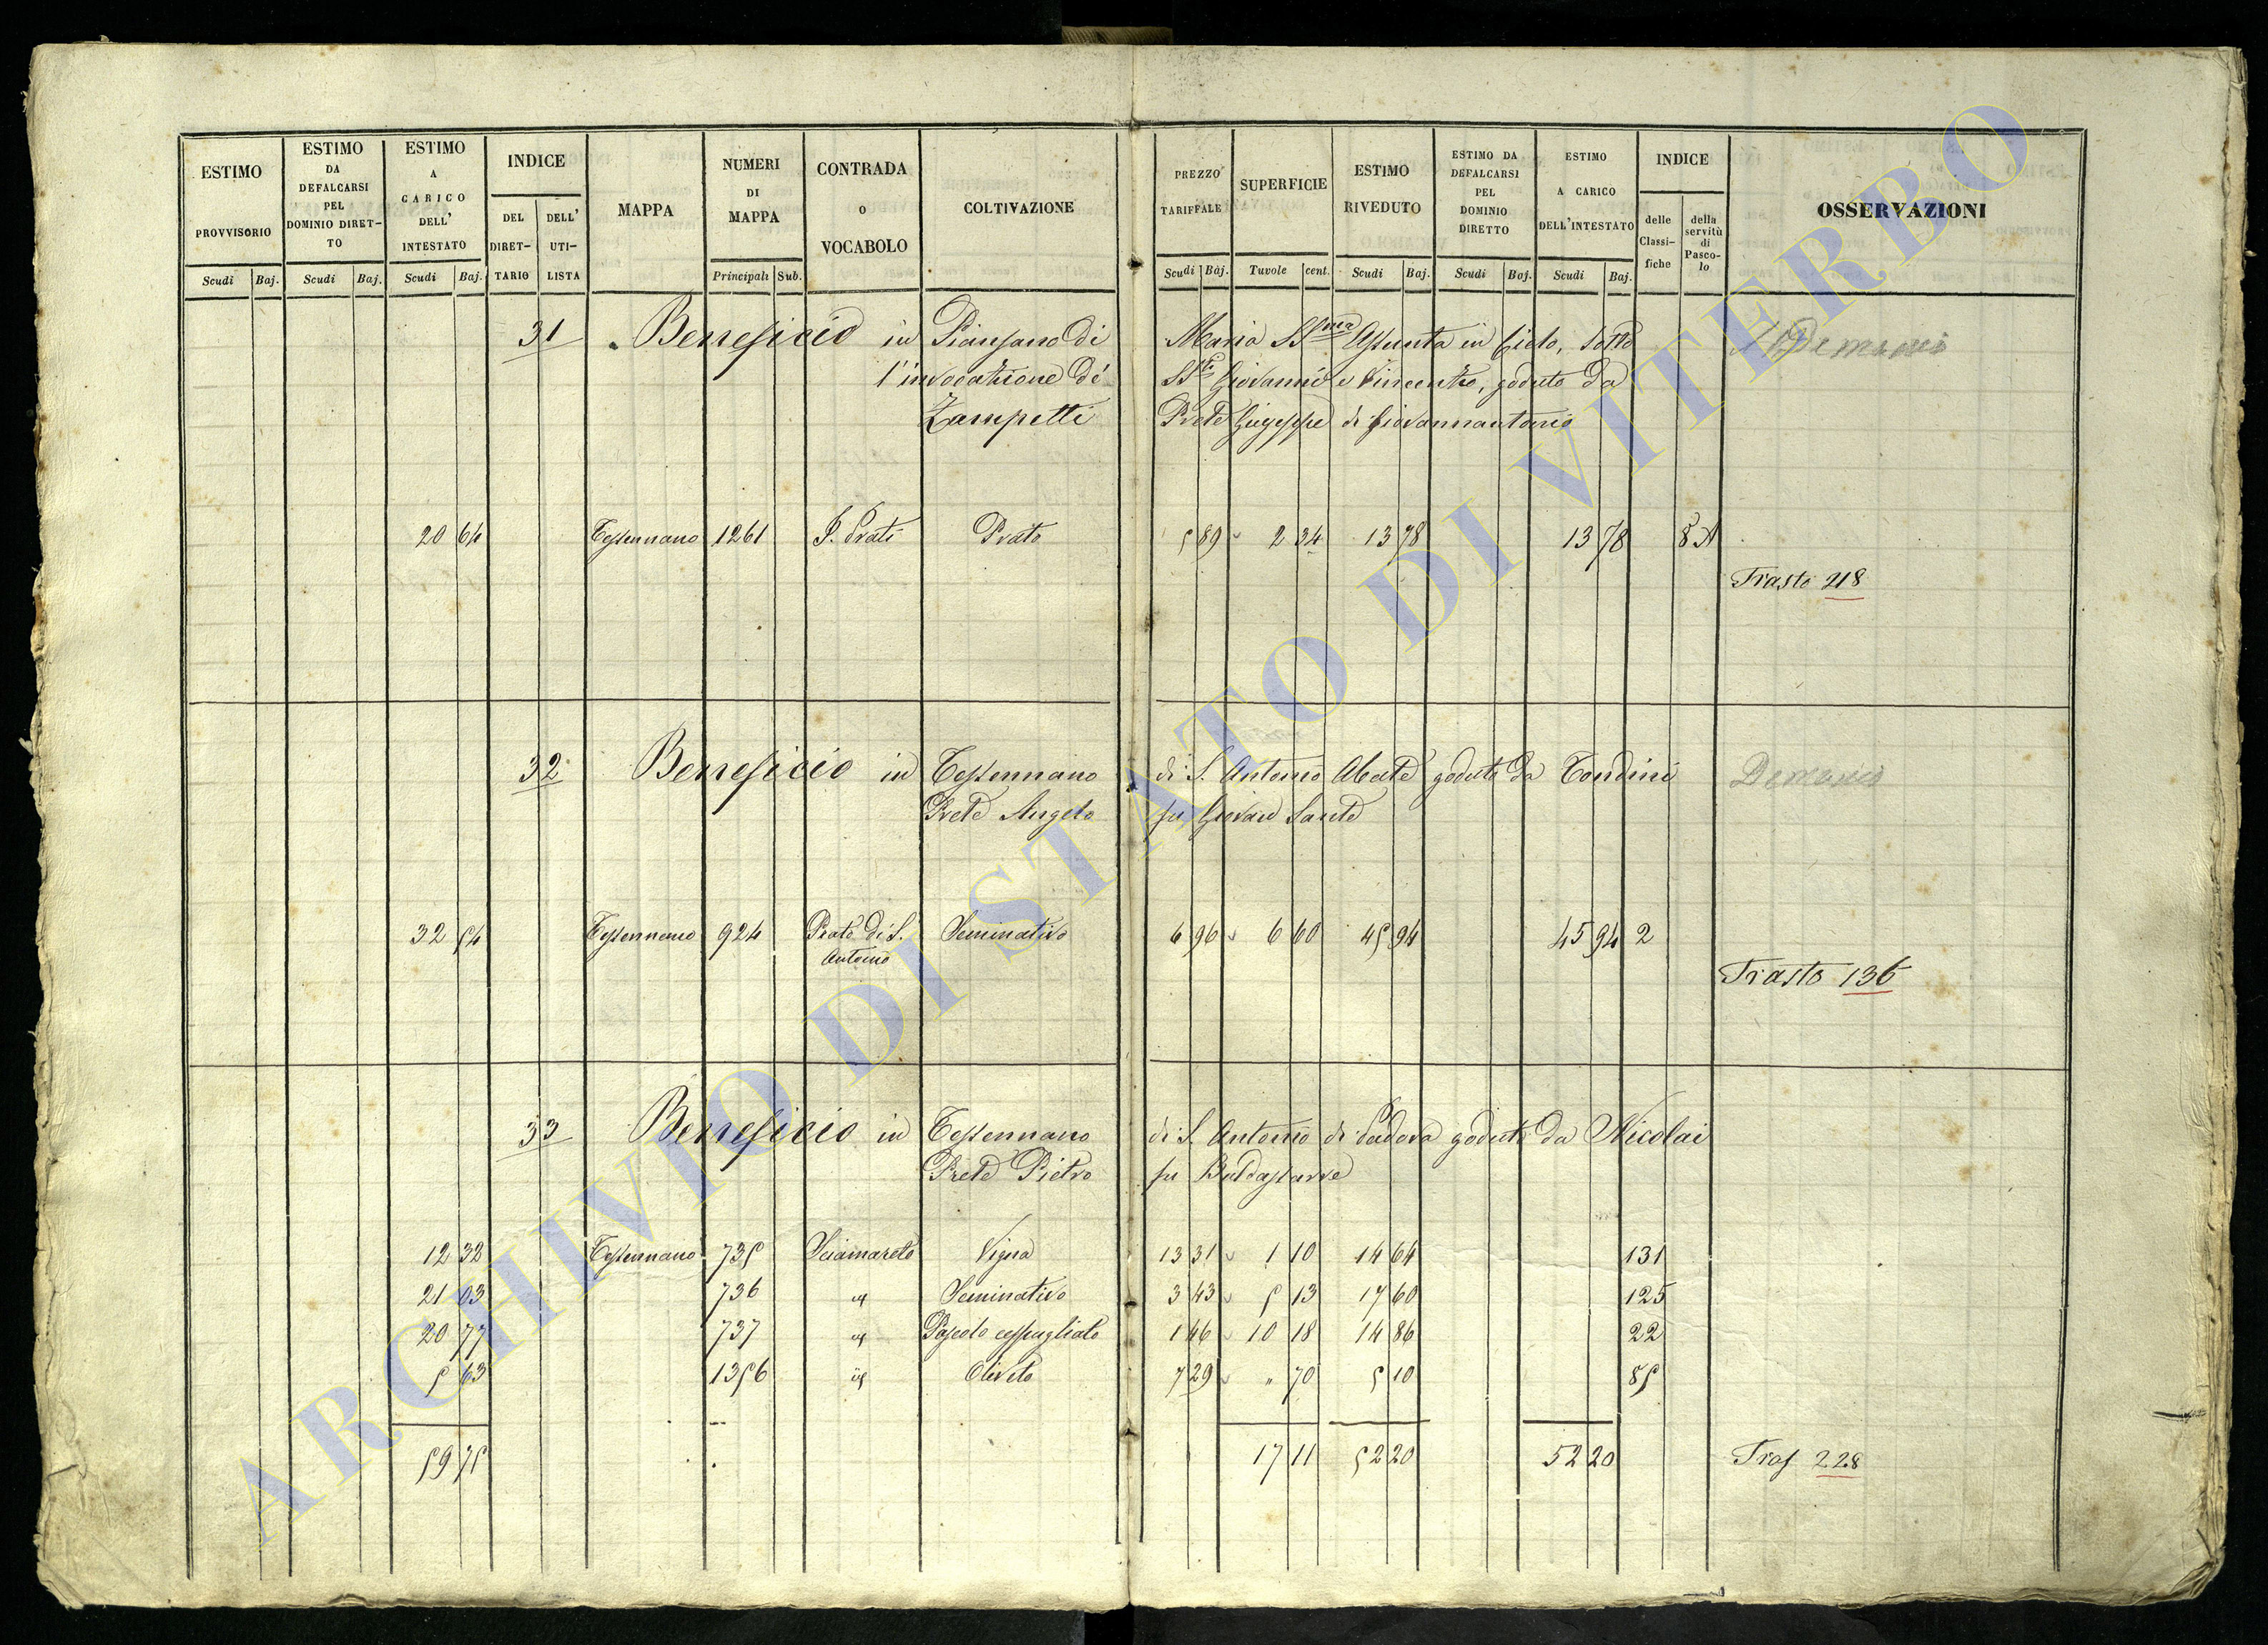 ESTIMO PROVVISORIO
ESTIMO DA DEFALCARSI PEL DOMINIO DIRET-TO
ESTIMO A CARICO DELL' INTESTATO
INDICE
DEL DIRET-TARIO
DELL' UTI-LISTA
MAPPA
NUMERI DI MAPPA
CONTRADA O VOCABOLO
COLTIVAZIONE
PREZZO TARIFFALE
SUPERFICIE
ESTIMO RIVEDUTO
ESTIMO DA DEFALCARSI PEL DOMINIO DIRETTO
ESTIMO A CARICO DELL'INTESTATO
INDICE
delle Classi-fiche
della servitù di Pasco-lo
OSSERVAZIONI
Scudi Baj. Scudi Baj. Scudi Baj. Principali Sub. Scudi Baj. Tavole cent. Scudi Baj. Scudi Baj. Scudi Baj.
31 Beneficio in Piansano di Maria SSma Assunta in Cielo, sotto Demanio
l'invocazione dé SSti Giovanni e Vincenzo, goduto da
Zampetti Prete Giuseppe di Giovannantonio
20 64 Tessennano 1261 I Prati Prato 5 89 2 34 13 78 13 78 8 A
Trasto 218
32 Beneficio in Tessennano di S. Antonio Abate goduto da Tondini Demanio
Prete Angelo fu Giovan Sante
32 54 Tessennano 924 Prato di S. Antonio Seminativo 6 96 6 60 45 94 45 94 2
Trasto 136
33 Beneficio in Tessennano di S. Antonio di Padova goduto da Nicolai
Prete Pietro fu Baldassarre
12 32 Tessennano 735 Sciamareto Vigna 13 31 1 10 14 64 131
21 03 736 id Seminativo 3 43 5 13 17 60 125
20 77 737 id Pascolo cespugliato 1 46 10 18 14 86 22
5 63 1356 id Oliveto 7 29 " 70 5 10 85
59 75 17 11 52 20 52 20 Tras 228
ARCHIVIO DI STATO DI VITERBO